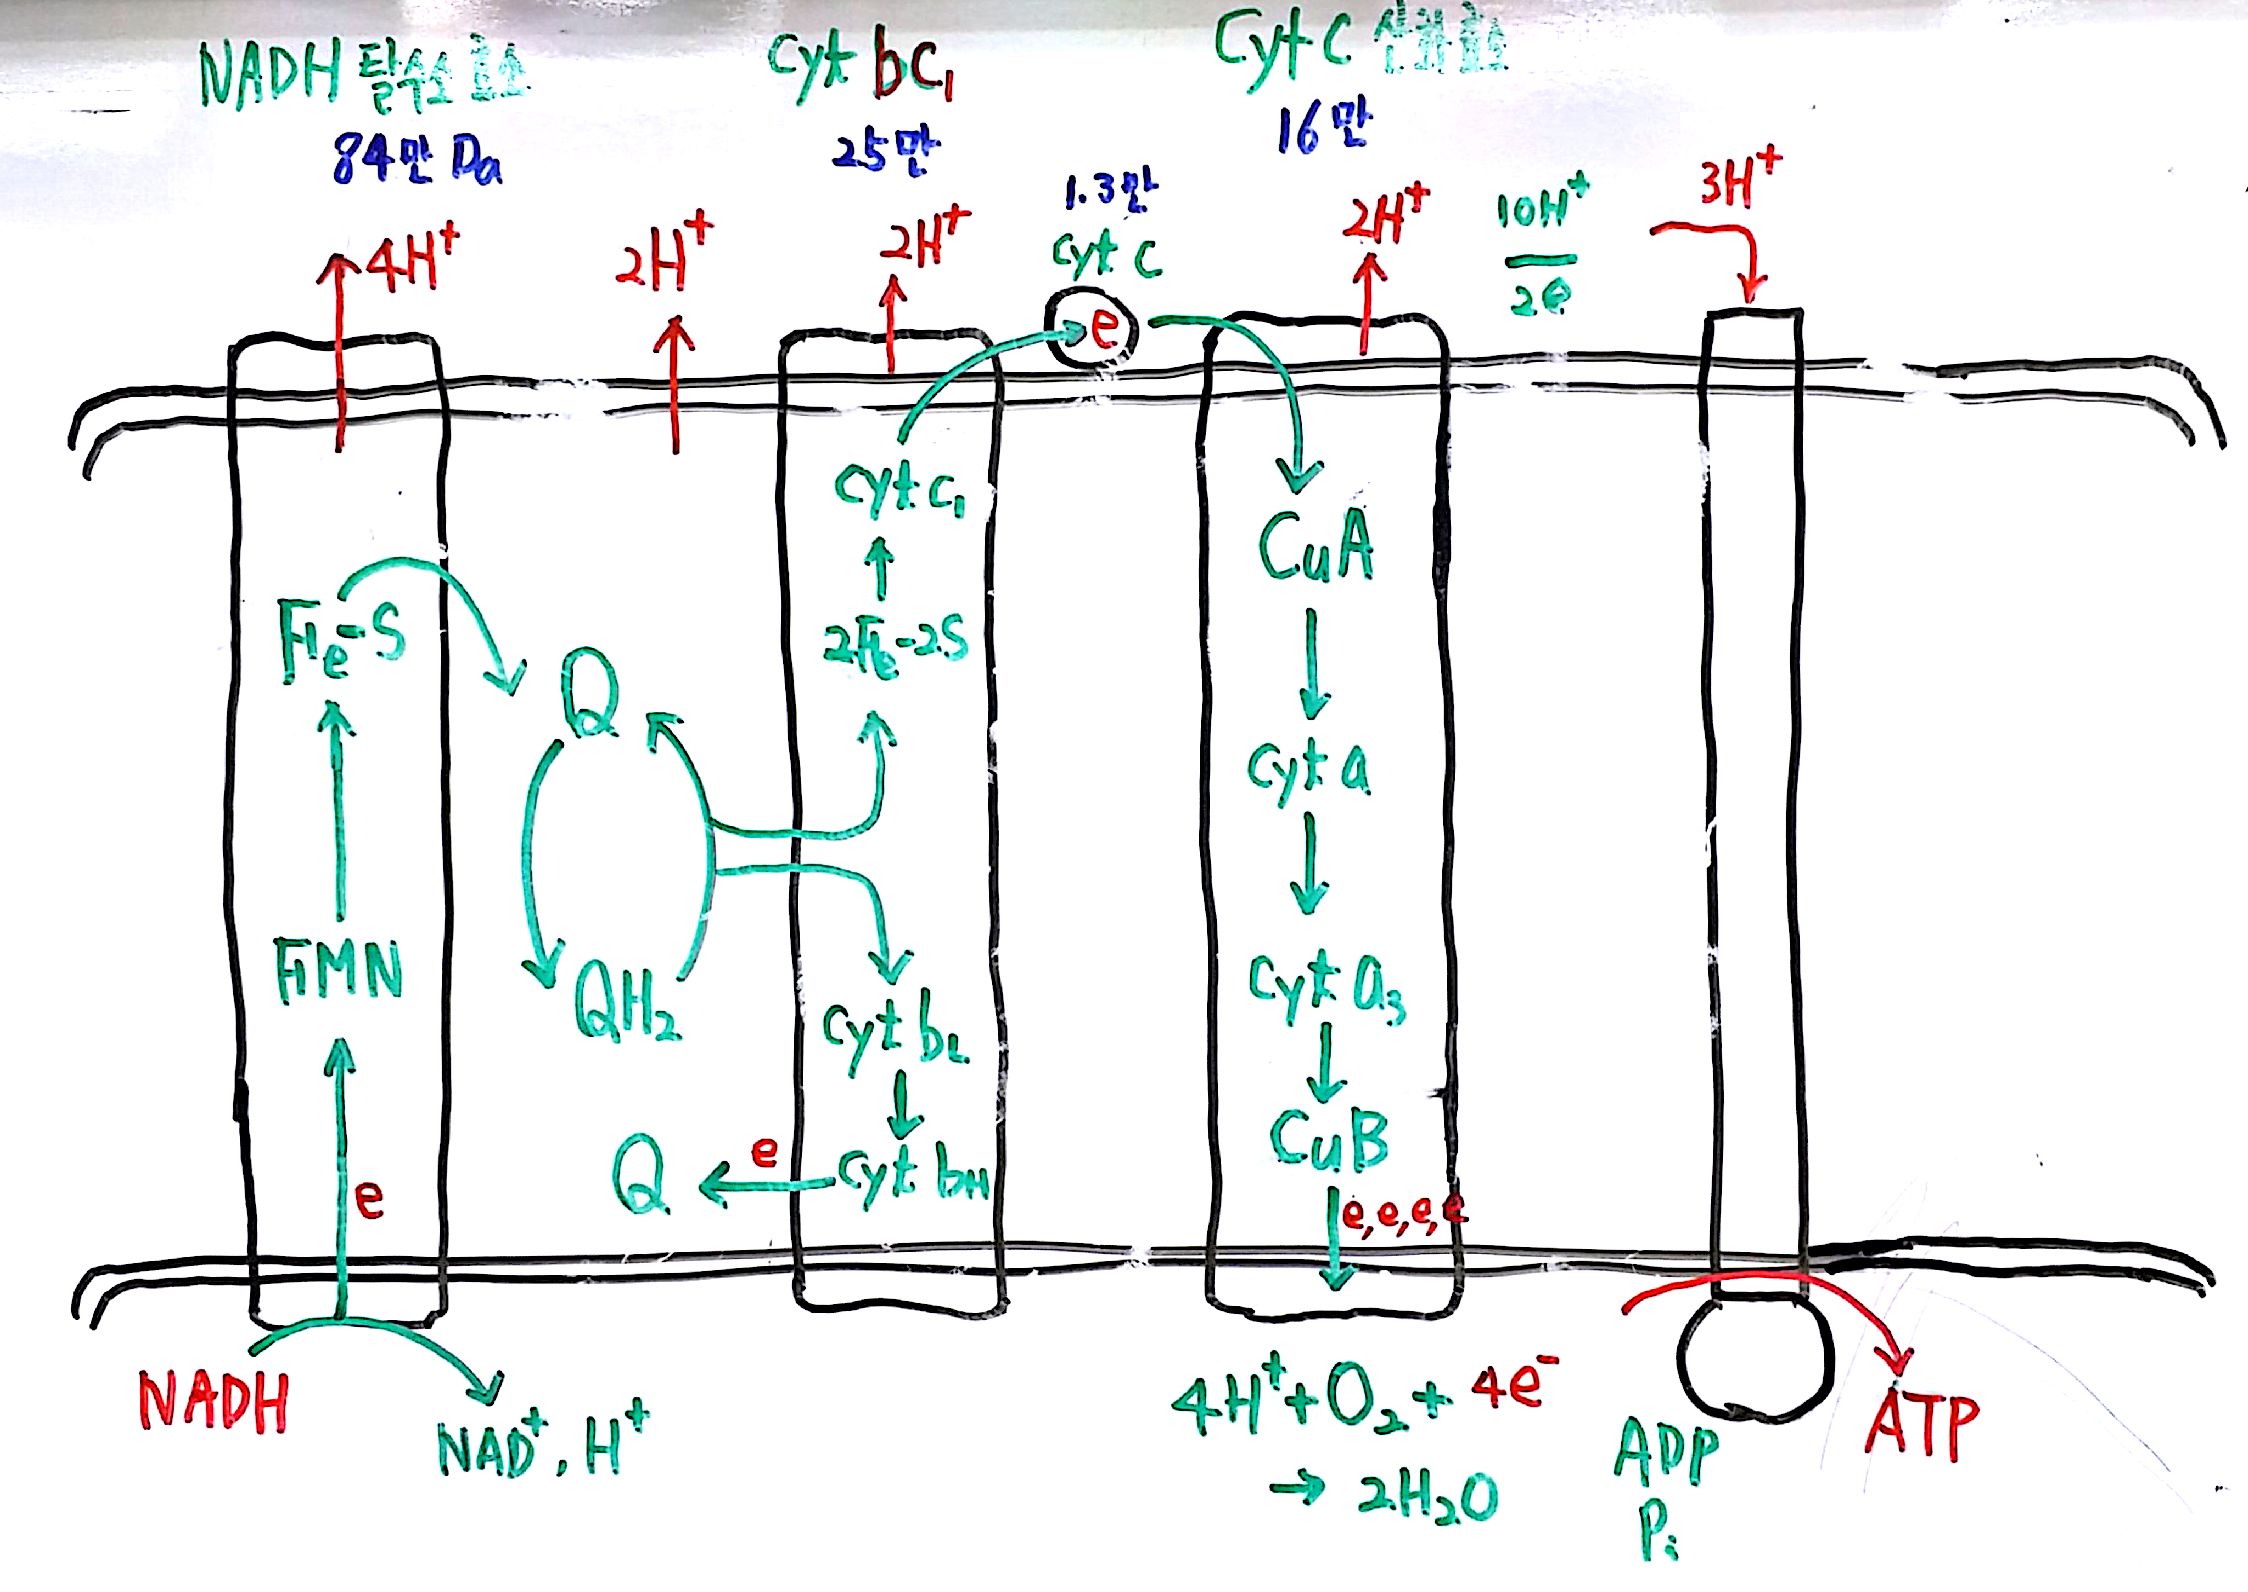 NADH 탈수소효소
84만 Da
Cyt bC₁
25만
Cyt C 산화효소
16만
1.3만
cyt c
4H⁺
2H⁺
2H⁺
2H⁺
10H⁺
2e
3H⁺
e
Fe-S
FMN
e
Q
QH₂
Q
e
cyt c₁
2Fe-2S
cyt b_L
cyt b_H
CuA
cyt a
cyt a₃
CuB
e, e, e, e
NADH
NAD⁺, H⁺
4H⁺ + O₂ + 4e⁻
→ 2H₂O
ADP
Pi
ATP